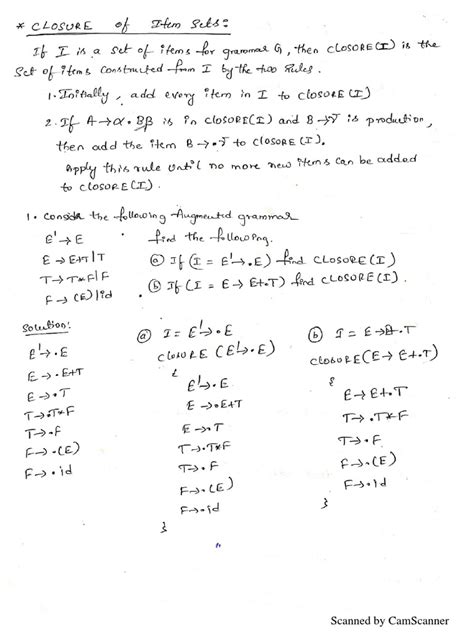 * CLOSURE of Item Sets:
If I is a set of items for grammar G, then CLOSURE(I) is the
set of items constructed from I by the two rules.
1. Initially, add every item in I to CLOSURE(I)
2. If A→α.Bβ is in CLOSURE(I) and B→γ is production,
then add the item B→.γ to CLOSURE(I).
Apply this rule until no more new items can be added
to CLOSURE(I).
1. Consider the following Augmented grammar
E'→E
E→E+T|T
T→T*F|F
F→(E)|id
find the following.
(a) If (I = E'→.E) find CLOSURE(I)
(b) If (I = E→E+.T) find CLOSURE(I).
Solution:
E'→.E
E→.E+T
E→.T
T→.T*F
T→.F
F→.(E)
F→.id
(a) I = E'→.E
CLOSURE(E'→.E)
{
E'→.E
E→.E+T
E→.T
T→.T*F
T→.F
F→.(E)
F→.id
}
(b) I = E→ .T
CLOSURE(E→E+.T)
{
E→E+.T
T→.T*F
T→.F
F→.(E)
F→.id
}
Scanned by CamScanner